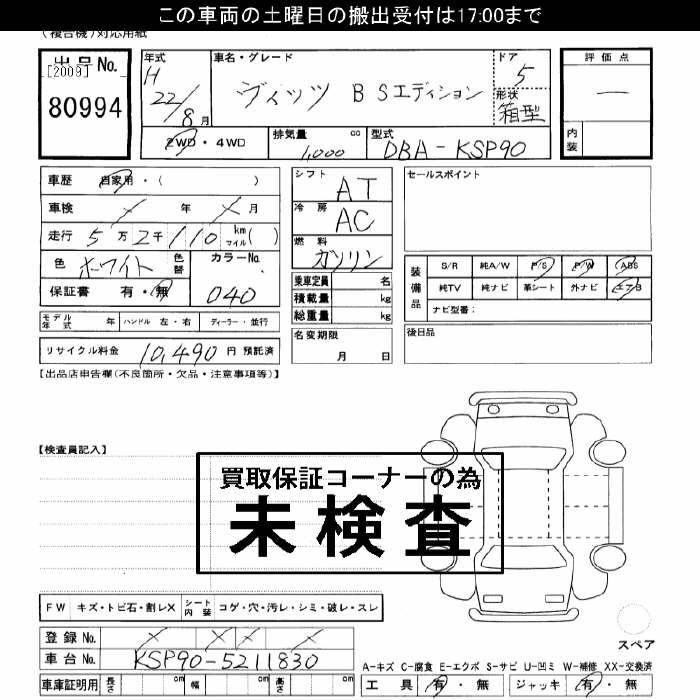 この車両の土曜日の搬出受付は17:00まで
(複合機)対応用紙
出品No.
[2009]
80994
年式
H
22/8月
車名・グレード
ヴィッツ BSエディション
ドア
5
形状
箱型
評価点
—
内装
2WD・4WD
排気量 cc
1,000
型式
DBA-KSP90
車歴 自家用・( )
車検 × 年 × 月
走行 5万2千110 km マイル( )
色 ホワイト 色替
カラーNo.
040
保証書 有・無
モデル年式 年 ハンドル 左・右 ディーラー・並行
リサイクル料金 10,490円 預託済
シフト
AT
冷房
AC
燃料
ガソリン
乗車定員 名
積載量 kg
総重量 kg
名変期限
月 日
セールスポイント
装備品
S/R 純A/W P/S P/W ABS
純TV 純ナビ 革シート 外ナビ エアB
ナビ型番:
後日品
【出品店申告欄(不良箇所・欠品・注意事項等)】
【検査員記入】
買取保証コーナーの為
未検査
FW キズ・トビ石・割レX シート内装 コゲ・穴・汚レ・シミ・破レ・スレ
登録No. × × × ×
車台No. KSP90-5211830
車庫証明用 長さ cm 幅 cm 高さ cm
スペア
A-キズ C-腐食 E-エクボ S-サビ U-凹ミ W-補修 XX-交換済
工具 有・無 ジャッキ 有・無